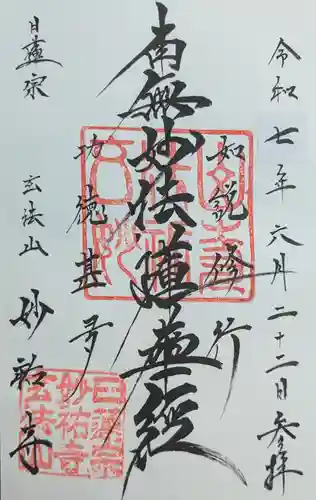 令和七年六月二十二日参拝
如説修行
南無妙法蓮華経
功徳甚多
日蓮宗
玄法山 妙祐寺
日蓮宗
妙祐寺
玄法山